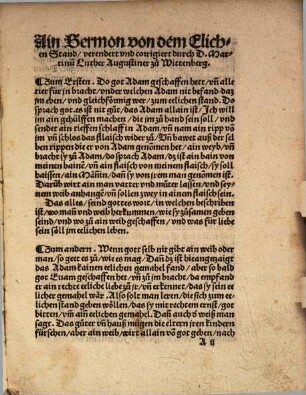 Ain Sermon von dem Elich-
en Stand/ verendert vnd corrigiert durch D. Mar-
tinū Luther Augustiner zů Wittenberg.
Zum Ersten. Do got Adam geschaffen hett/ vñ alle
tier für jn bracht/ vnder welchen Adam nit befand daz
jm eben/ vnd gleichförmig wer/ zum eelichen stand. Do
sprach got. es ist nit gůt/ das Adam allain ist/ Ich will
im ain gehülffen machen/ die jm zů hand sein soll/ vnd
sendet ain tieffen schlaff in Adam/ vñ nam ain ripp võ
jm/ vñ schlos das flaisch wider zů/ Vñ bawet auß der sel
ben rippen die er von Adam genõmen het/ ain weyb/ vñ
bracht sy zů Adam/ do sprach Adam/ dz ist ain bain von
meinen bainē/ vñ ain flaisch von meinem flaisch/ sy soll
haissen/ ain Mãnin/ dañ sy von jrem man genõmen ist.
Darũb wirt ain man vatter vnd můter lassen/ vnd sey-
nem weib anhangē/ vñ sollen zwey in ainem flaisch sein.
Das alles/ seind gottes wort/ in welchen beschriben
ist/ wo man vnd weib herkummen/ wie sy zůsamen geben
seind/ vnd wo zů ain weib geschaffen/ vnd was für liebe
sein soll jm eelichen leben.
Zum andern. Wenn gott selb nit gibt ain weib oder
man/ so geet es zů/ wie es mag/ Dañ dz ist hieangezaigt
das Adam kainen eelichen gemahel fand/ aber so bald
got Euam geschaffen het/ vñ zů jm bracht/ da empfand
er ain recht eelich liebe zů jr/ vñ erkennet/ das sy sein ee
licher gemahel wär. Also solt man leren/ die sich zum ee-
lichen stand geben wöllen/ das sy mit rechtem ernst/ got
bitten/ vm̃ aiñ eelichen gemahel. Dañ auch ð weiß man
sagt. Das gůter vñ hauß mügen die eltern jren kindern
fürsehen/ aber ain weib/ wirt allain võ got geben/ nach
A ij